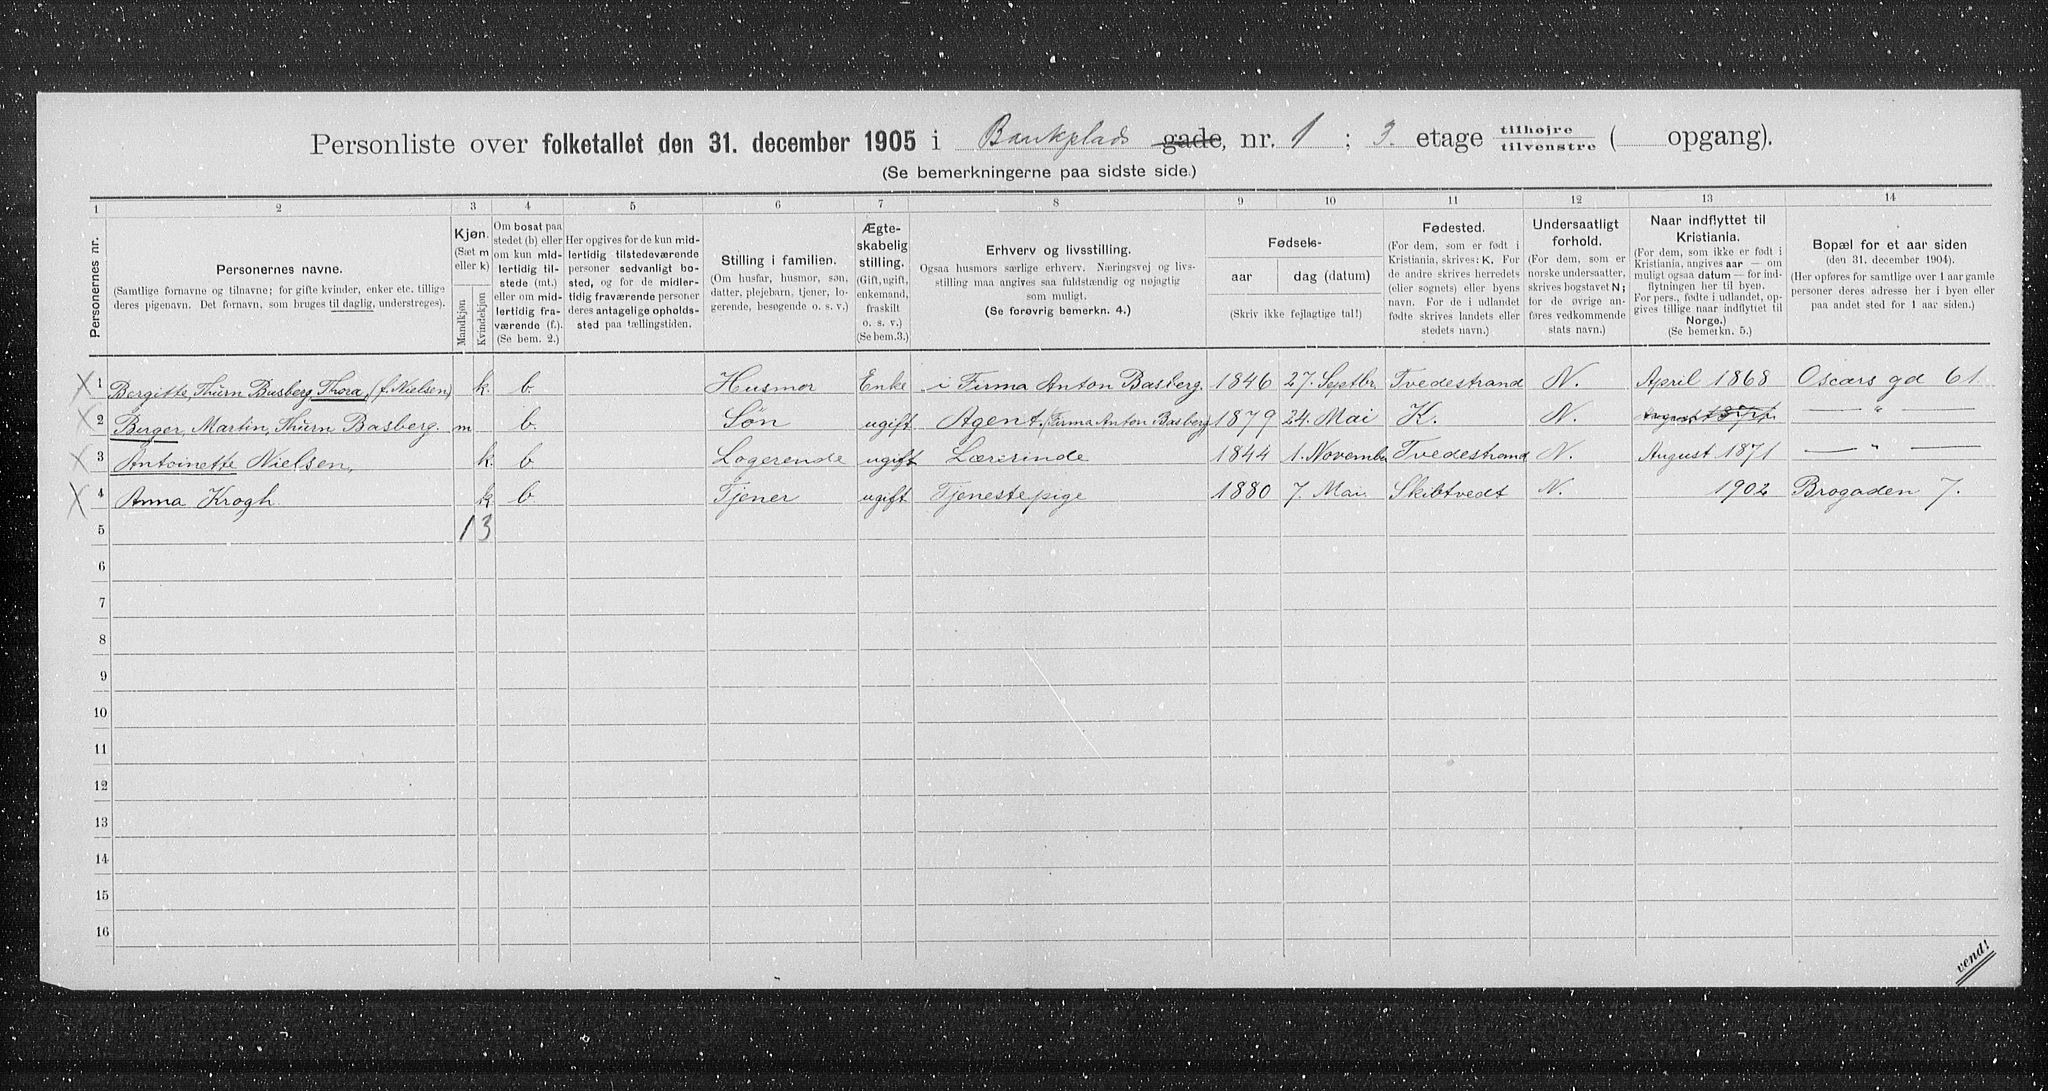 Personliste over folketallet den 31. december 1905 i Bankplads gade, nr. 1 ; 3. etage tilhøjre tilvenstre ( opgang).
(Se bemerkningerne paa sidste side.)
1 2 3 4 5 6 7 8 9 10 11 12 13 14
Personernes nr.
Personernes navne.
(Samtlige fornavne og tilnavne; for gifte kvinder, enker etc. tillige
deres pigenavn. Det fornavn, som bruges til daglig, understreges).
Kjøn.
(Sæt m
eller k)
Mandkjøn
Kvindekjøn
Om bosat paa
stedet (b) eller
om kun mid-
lertidig til-
stede (mt.)
eller om mid-
lertidig fra-
værende (f.).
(Se bem. 2.)
Her opgives for de kun mid-
lertidig tilstedeværende
personer sedvanligt bo-
sted, og for de midler-
tidig fraværende personer
deres antagelige opholds-
sted paa tællingstiden.
Stilling i familien.
(Om husfar, husmor, søn,
datter, plejebarn, tjener, lo-
gerende, besøgende o. s. v.)
Ægte-
skabelig
stilling.
(Gift, ugift,
enkemand,
fraskilt
o. s. v.)
(Se bem.3.)
Erhverv og livsstilling.
Ogsaa husmors særlige erhverv. Næringsvej og livs-
stilling maa angives saa fuldstændig og nøjagtig
som muligt.
(Se forøvrig bemerkn. 4.)
Fødsels-
aar
dag (datum)
(Skriv ikke fejlagtige tal!)
Fødested.
(For dem, som er født i
Kristiania, skrives: K. For
de andre skrives herredets
(eller sognets) eller byens
navn. For de i udlandet
fødte skrives landets eller
stedets navn.)
Undersaatligt
forhold.
(For dem, som er
norske undersaatter,
skrives bogstavet N;
for de øvrige an-
føres vedkommende
stats navn.)
Naar indflyttet til
Kristiania.
(For dem, som ikke er født i
Kristiania, angives aar — om
muligt ogsaa datum — for ind-
flytningen her til byen.
For pers., fødte i udlandet, op-
gives tillige naar indflyttet til
Norge.)
(Se bemerkn. 5.)
Bopæl for et aar siden
(den 31. december 1904).
(Her opføres for samtlige over 1 aar gamle
personer deres adresse her i byen eller
paa andet sted for 1 aar siden.)
1 Bergitte, Thurn Basberg, Thora, (f. Nielsen) k. b. Husmor Enke i Firma Anton Basberg. 1846 27. Septbr. Tvedestrand N. April 1868 Oscars gd 61
2 Birger, Martin, Thurn Basberg. m b. Søn ugift Agent. (Firma Anton Basberg) 1879 24. Mai K. N. — " —
3 Antoinette Nielsen, k. b Logerende ugift Lærerinde 1844 1. November Tvedestrand N. August 1871 — " —
4 Anna Krogh k b. Tjener ugift Tjenestepige 1880 7. Mai Skibtvedt N. 1902 Brogaden 7.
5 1 3
6
7
8
9
10
11
12
13
14
15
16
vend!